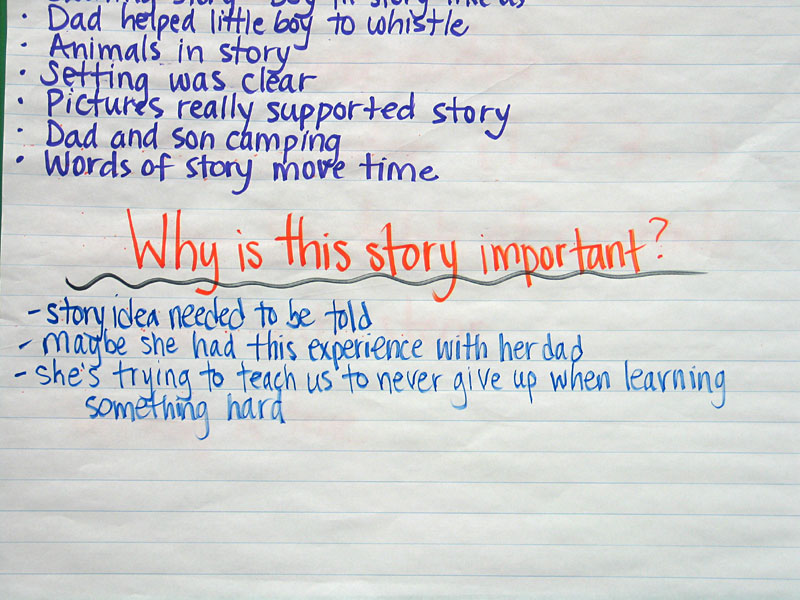 story boy in story like us
• Dad helped little boy to whistle
• Animals in story
• Setting was clear
• Pictures really supported story
• Dad and son camping
• Words of story move time
Why is this story important?
- story idea needed to be told
- maybe she had this experience with her dad
- she's trying to teach us to never give up when learning
something hard